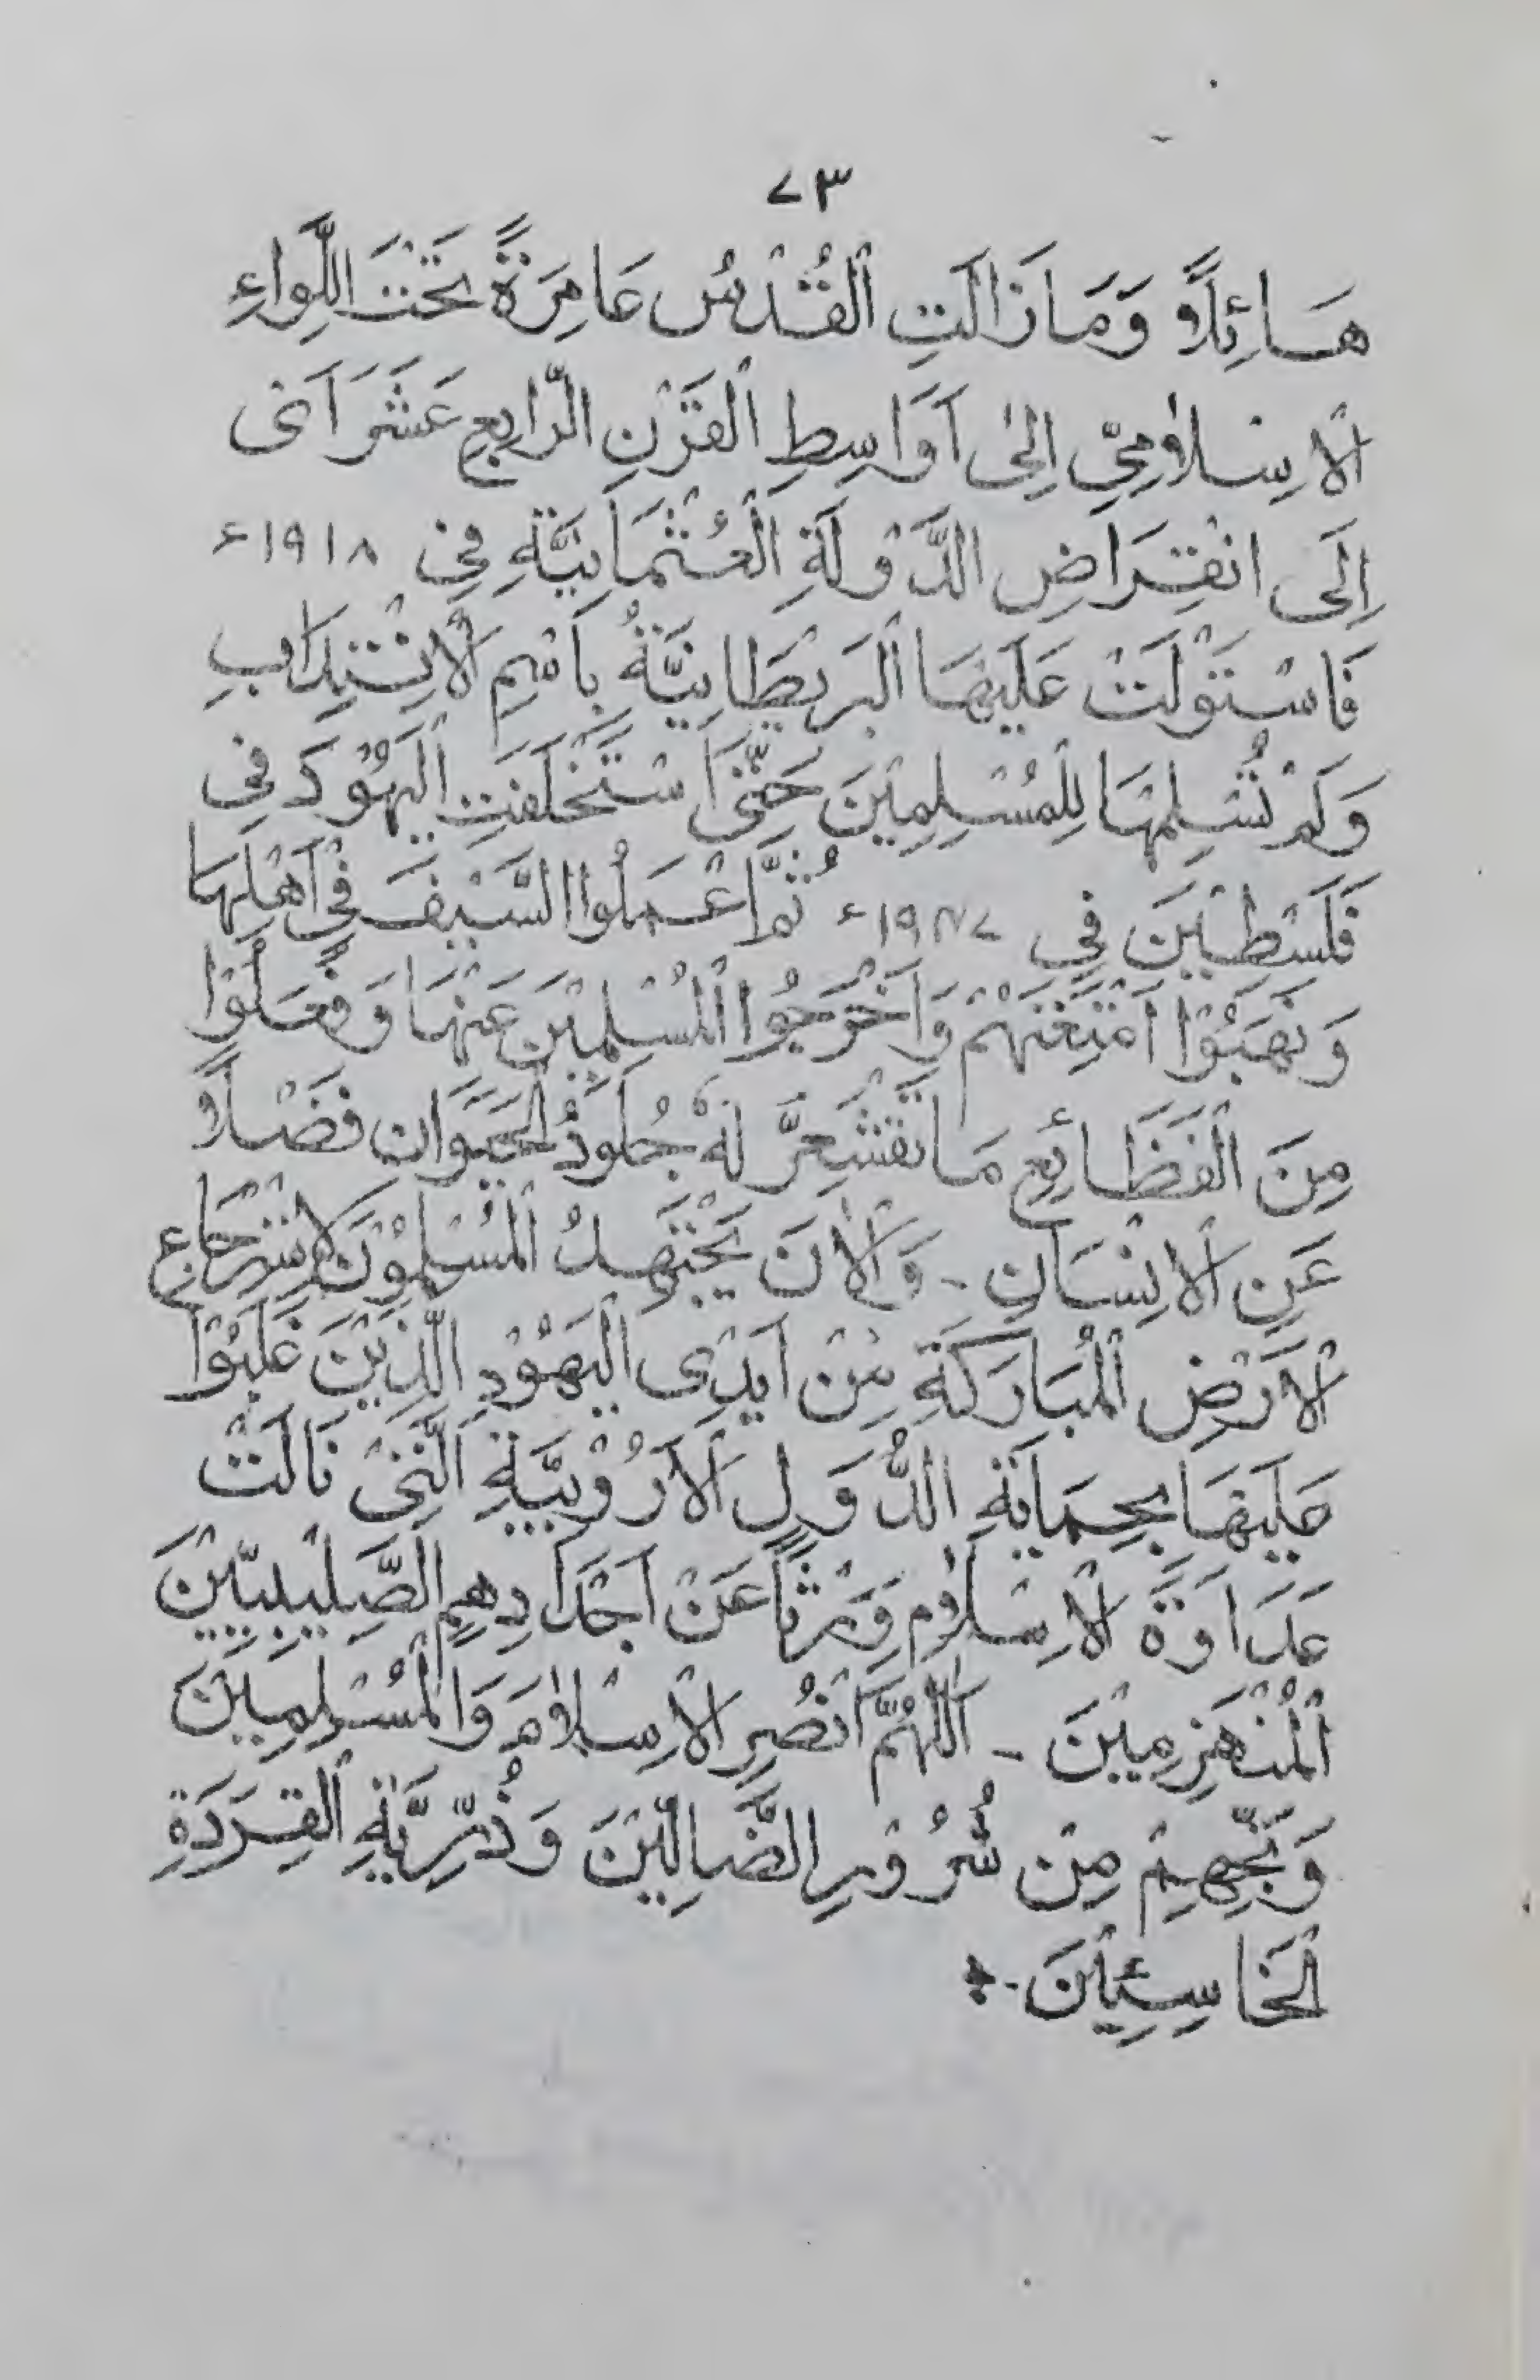 ٧٣
هَائِلاً وَمَازَالَتِ الْقُدْسُ عَامِرَةً تَحْتَ اللِّوَاءِ
الْاِسْلَامِيِّ اِلىٰ اَوَاسِطِ الْقَرْنِ الرَّابِعِ عَشَرَ اَعْنى
اِلَى انْقِرَاضِ الدَّوْلَةِ الْعُثْمَانِيَّةِ فِي ١٩١٨ء
فَاسْتَوْلَتْ عَلَيْهَا الْبَرِيْطَانِيَّةُ بِاسْمِ الْاِنْتِدَابِ
وَلَمْ تُسَلِّمْهَا لِلْمُسْلِمِيْنَ حَتّٰى اسْتَخْلَفَتِ الْيَهُوْدَ فِي
فَلَسْطِيْنَ فِي ١٩٤٧ء ثُمَّ اعْمَلُوا السَّيْفَ فِيْ اَهْلِهَا
وَنَهَبُوْا اَمْتِعَتَهُمْ وَاَخْرَجُوا الْمُسْلِمِيْنَ عَنْهَا وَفَعَلُوْا
مِنَ الْفَظَائِعِ مَا تَقْشَعِرُّ لَهٗ جُلُوْدُ الْحَيَوَانِ فَضْلاً
عَنِ الْاِنْسَانِ - وَالْاٰنَ يَجْتَهِدُ الْمُسْلِمُوْنَ لِاسْتِرْجَاعِ
الْاَرْضِ الْمُبَارَكَةِ مِنْ اَيْدِى الْيَهُوْدِ الَّذِيْنَ غَلَبُوْا
عَلَيْهَا بِحِمَايَةِ الدُّوَلِ الْاَرُوْبِيَّةِ الَّتِىْ نَالَتْ
عَدَاوَةَ الْاِسْلَامِ وَرْثاً عَنْ اَجْدَادِهِمِ الصَّلِيْبِيِّيْنَ
الْمُنْهَزِمِيْنَ - اَللّٰهُمَّ انْصُرِ الْاِسْلَامَ وَالْمُسْلِمِيْنَ
وَنَجِّهِمْ مِنْ شُرُوْرِ الضَّالِّيْنَ وَذُرِّيَّةِ الْقِرَدَةِ
الْخَاسِئِيْنَ-